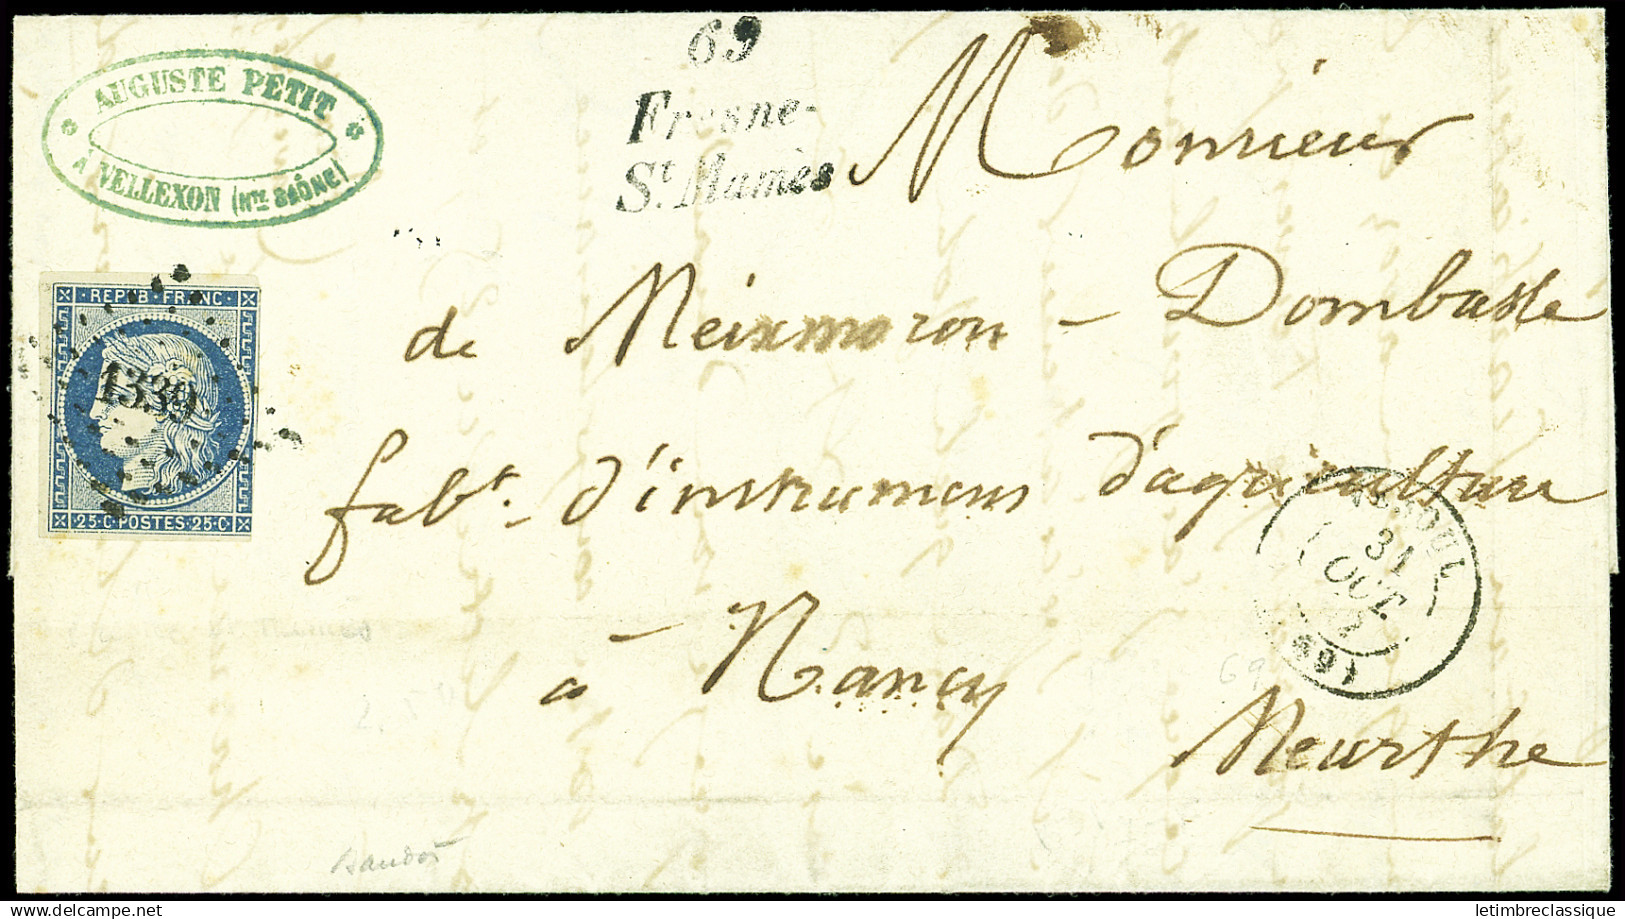 AUGUSTE PETIT
À VELLEXON (HTE SAÔNE)
69
Fresne-
St. Mamès
Monsieur
de Meixmoron - Dombasle
fabt. d'instrumens d'agriculture
à Nancy
Meurthe
REPUB·FRANC·
1339
25·C·POSTES·25·C·
VESOUL
31
OCT.
(69)
69
delcampe.net
letimbreclassique